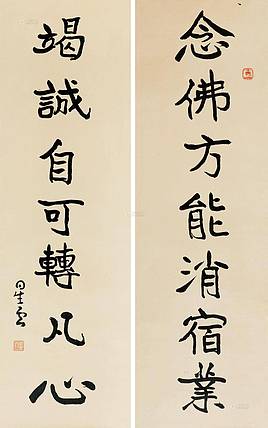 念佛方能消宿業
竭誠自可轉凡心
星雲